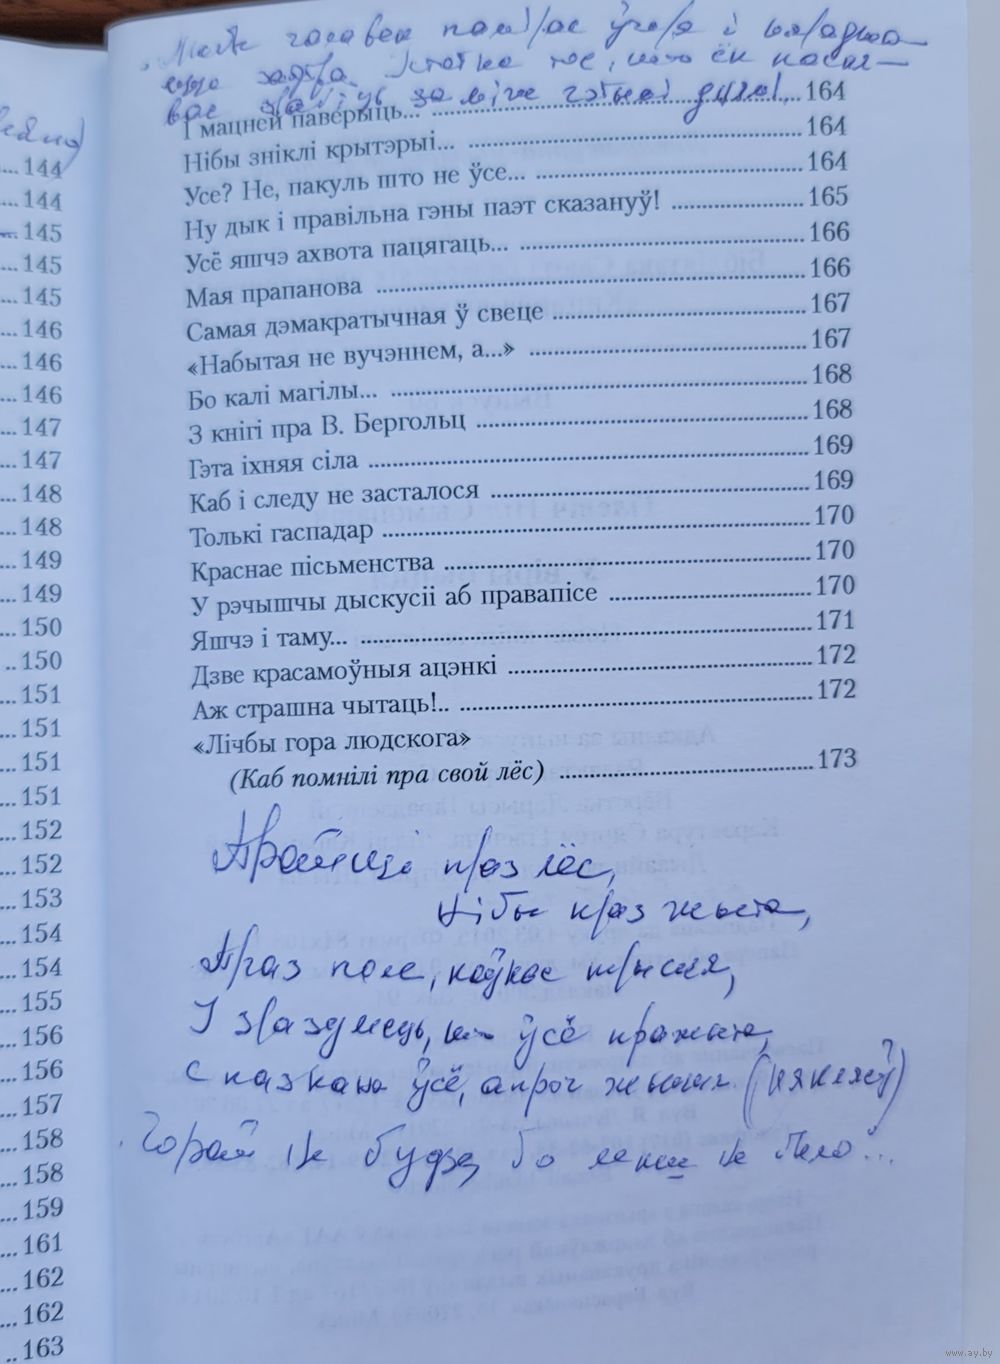 Можа чалавек памірае ўчора і
заўтра. Істотна тое, што ён
вас зрабіць за міг гэтай дзеі,
І мацней паверыць... 164
Нібы зніклі крытэрыі... 164
Усе? Не, пакуль што не ўсе... 164
Ну дык і правільна гэны паэт сказануў! 165
Усё яшчэ ахвота пацягаць... 166
Мая прапанова 166
Самая дэмакратычная ў свеце 167
«Набытая не вучэннем, а...» 167
Бо калі магілы... 168
З кнігі пра В. Бергольц 168
Гэта іхняя сіла 169
Каб і следу не засталося 169
Толькі гаспадар 170
Краснае пісьменства 170
У рэчышчы дыскусіі аб правапісе 170
Яшчэ і таму... 171
Дзве красамоўныя ацэнкі 172
Аж страшна чытаць!.. 172
«Лічбы гора людскога»
(Каб помнілі пра свой лёс) 173
Прайсці праз лёс,
Нібы праз жыта,
Праз поле, коўкае
І зразумець, што ўсё пражыта,
Спазнана ўсё, апроч жыцця. (Някляеў)
Горай не будзе, бо лепш не было...
...144
...144
...145
...145
...145
...146
...146
...146
...147
...147
...148
...148
...149
...149
...150
..150
...151
...151
...151
...151
...152
...152
...153
...154
...154
...155
...156
...156
...157
...158
...158
...159
...161
...162
...162
..163
www.ay.by